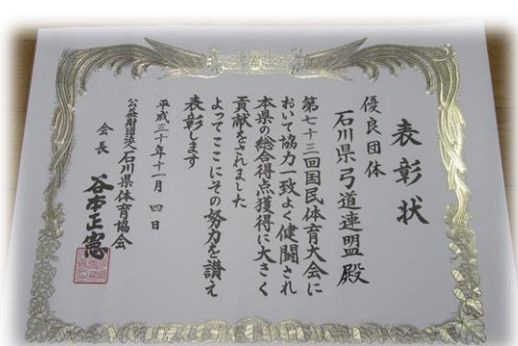 表彰状
優良団体
石川県弓道連盟殿
第七十三回国民体育大会に
おいて協力一致よく健闘され
本県の総合得点獲得に大きく
貢献をされました
よってここにその努力を讃え
表彰します
平成三十年十一月四日
公益財団法人石川県体育協会
会長 谷本正憲